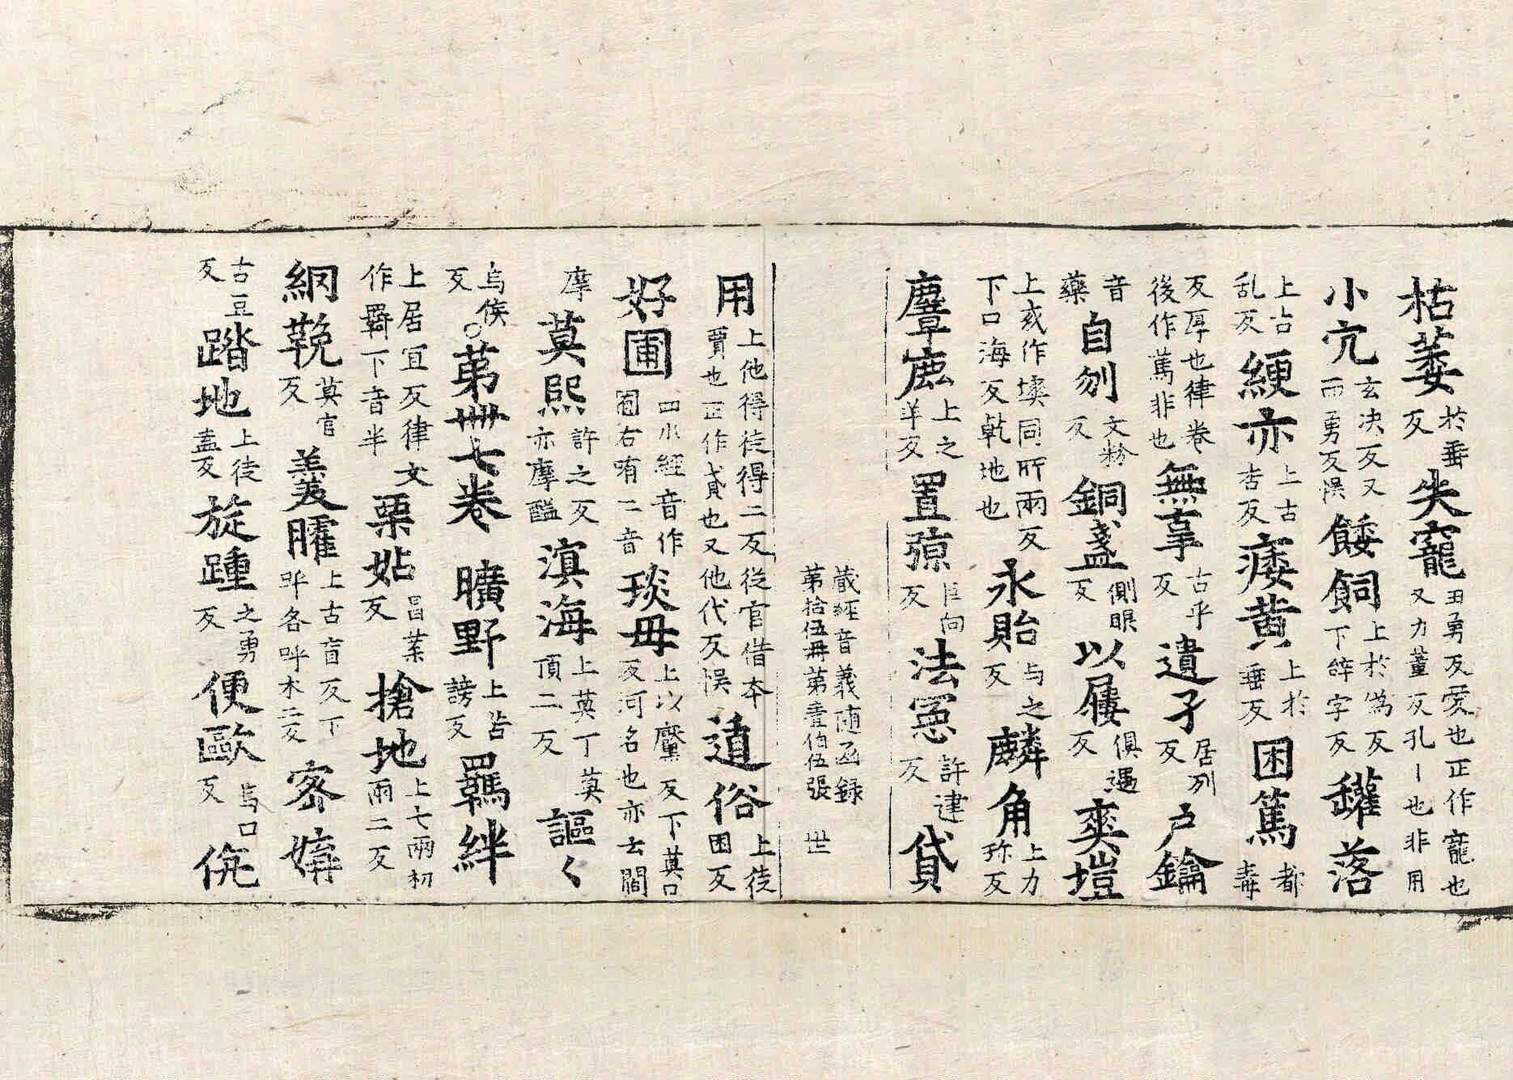 枯萎於垂反失寵丑勇反愛也正作寵也又力董反孔丨也非用
小穴玄決反又而勇反悞餧飼上於僞反下辝字反罐落
上古乱反綆亦上古杏反痿黄上於垂反困篤都毒
反厚也律卷後作篤非也無辜古乎反遺孑居列反户鑰
音藥自刎文粉反銅盞側眼反以屨俱遇反爽塏
上或作塽同所兩反下口海反乹地也永貽与之反麟角上力珎反
麞鹿上之羊反置弶巨向反法憲許建反貸
藏經音義隨函録
第拾伍冊第壹伯伍張 世
用上他得徒得二反從官借本賈也正作貣也又他代反悞遁俗上徒困反
好圃四水經音作囿右宥二音琰毋上以黶反下莫口反河名也亦云閻
摩莫熙許之反亦摩醯滇海上莫丁莫頂二反謳〻
烏侯反〇第卌七卷 曠野上苦謗反羈絆
上居宜反律文作羇下音半栗姑昌葉反搶地上七兩初兩二反
網鞔莫官反羨臛上古盲反下呼各呼木二反客嫥
古豆反踏地上徒盍反旋踵之勇反便歐烏口反侊